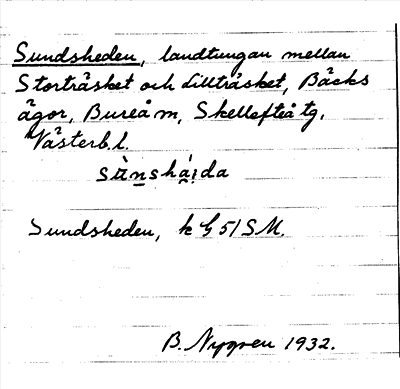 Sundsheden, landtungan mellan
Storträsket och Lillträsket, Bäcks
ägor, Bureå m, Skellefteå tg,
Västerb. l.
sùnshái̯da
Sundsheden, k G 51 SM.
B. Nygren 1932.